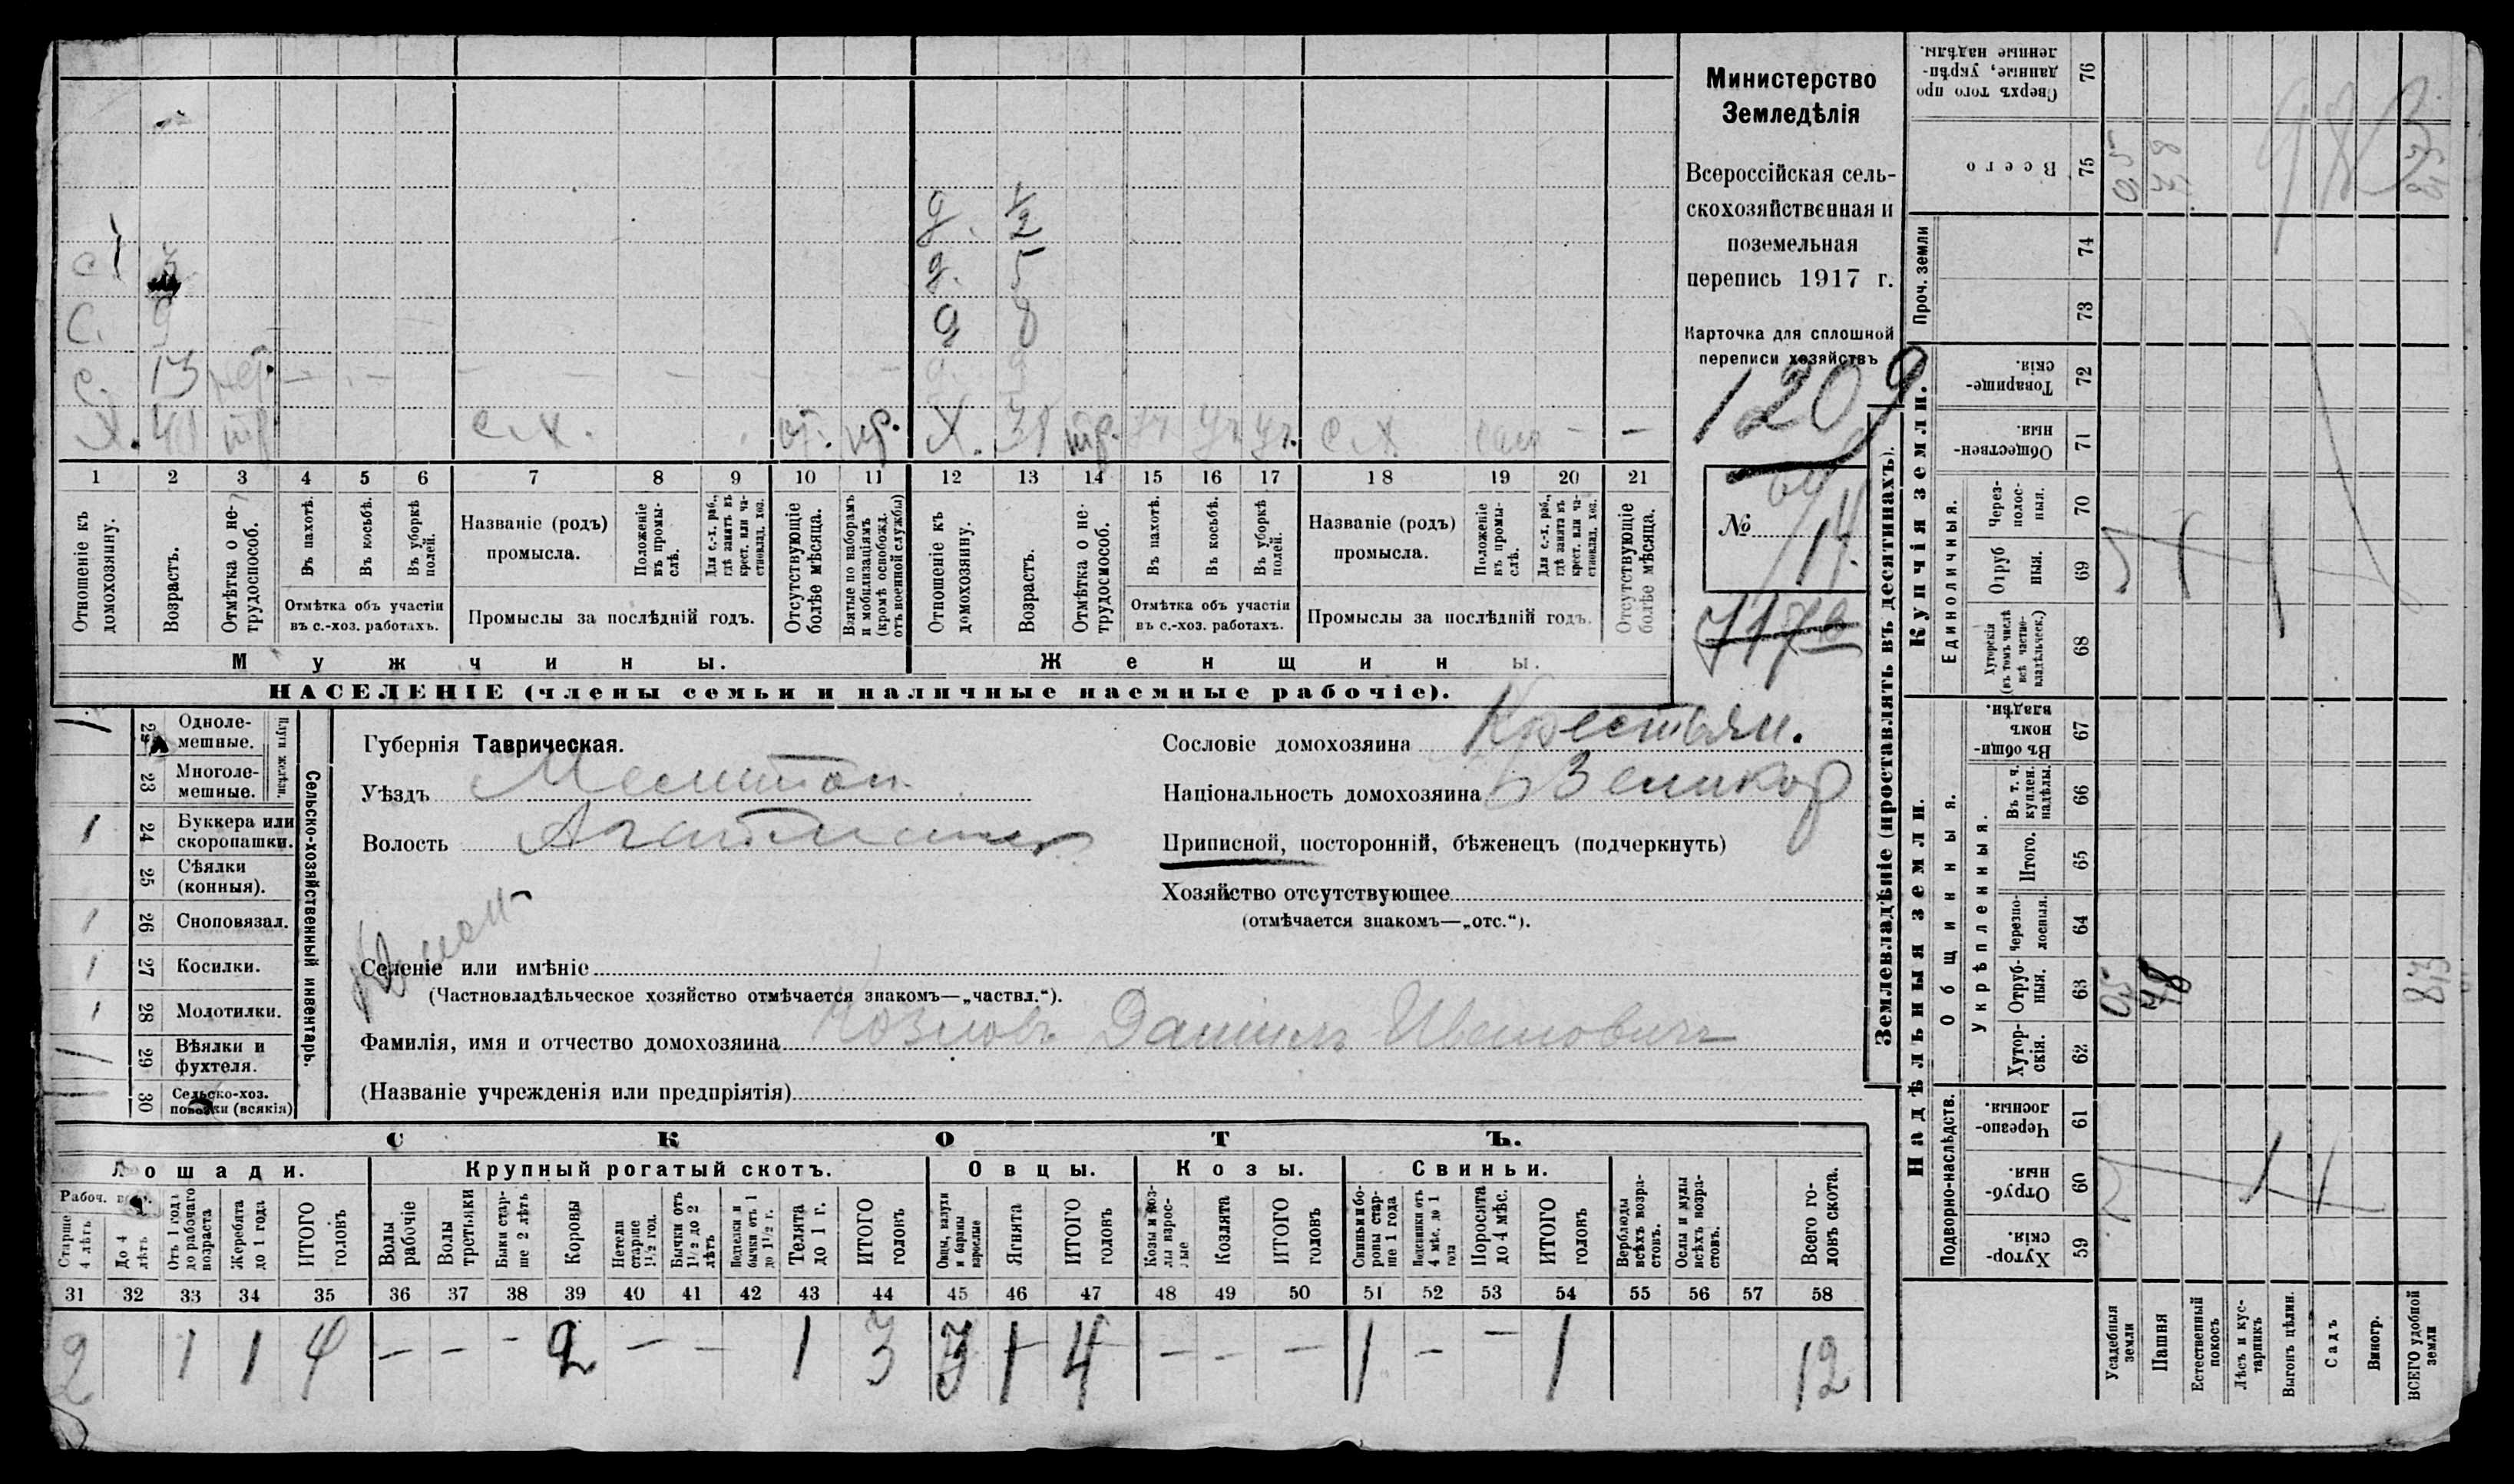 д. 1/2
с. 3 д. 5
С. 9 д 8
с. 13
Х. тр с.х. от. пр. Х. 38 тр. уч уч уч. с х
1 2 3 4 5 6 7 8 9 10 11 12 13 14 15 16 17 18 19 20 21
Отношеніе къ домохозяину.
Возрастъ.
Отмѣтка о не-трудоспособ.
Въ пахотѣ.
Въ косьбѣ.
Въ уборкѣ полей.
Отмѣтка объ участіи
въ с.-хоз. работахъ.
Названіе (родъ)
промысла.
Положеніе въ промы-слѣ.
Для с.-х. раб., гдѣ занятъ въ крест. или ча-стновлад. хоз.
Промыслы за послѣдній годъ.
Отсутствующіе болѣе мѣсяца.
Взятые по наборамъ и мобилизаціямъ (кромѣ освобожд. отъ военной службы)
Отношеніе къ домохозяину.
Возрастъ.
Отмѣтка о не-трудоспособ.
Въ пахотѣ.
Въ косьбѣ.
Въ уборкѣ полей.
Отмѣтка объ участіи
въ с.-хоз. работахъ.
Названіе (родъ)
промысла.
Положеніе въ промы-слѣ.
Для с.-х. раб., гдѣ занята въ крест. или ча-стновлад. хоз.
Промыслы за послѣдній годъ.
Отсутствующіе болѣе мѣсяца.
Мужчины. Женщины.
НАСЕЛЕНІЕ (члены семьи и наличные наемные рабочіе).
Министерство
Земледѣлія
Всероссійская сель-
скохозяйственная и
поземельная
перепись 1917 г.
Карточка для сплошной
переписи хозяйствъ
1209
№ 14
Сельско-хозяйственный инвентарь.
Плуги желѣзн.
Одноле-
мешные.
23 Многоле-
мешные.
1 24 Буккера или
скоропашки.
25 Сѣялки
(конныя).
1 26 Сноповязал.
1 27 Косилки.
1 28 Молотилки.
1 29 Вѣялки и
фухтеля.
30 Сельско-хоз.
повозки (всякія)
Губернія Таврическая.
Уѣздъ Мелитоп.
Волость
Селеніе или имѣніе
(Частновладѣльческое хозяйство отмѣчается знакомъ—„частвл.“).
Фамилія, имя и отчество домохозяина Козловъ Даніилъ Ивановичъ
(Названіе учрежденія или предпріятія)
Сословіе домохозяина Крестьян.
Національность домохозяина Великор
Приписной, посторонній, бѣженецъ (подчеркнуть)
Хозяйство отсутствующее
(отмѣчается знакомъ—„отс.“).
СКОТЪ.
Лошади. Крупный рогатый скотъ. Овцы. Козы. Свиньи.
Рабоч.
Старше 4 лѣтъ
До 4 лѣтъ
Отъ 1 года до рабочаго возраста
Жеребята до 1 года
ИТОГО головъ
Волы рабочіе
Волы третьяки
Быки стар-ше 2 лѣтъ
Коровы
Нетели старше 1½ год.
Бычки отъ 1½ до 2 лѣтъ
Подтелки и бычки отъ 1 до 1½ г.
Телята до 1 г.
ИТОГО головъ
Овцы, валухи и бараны взрослые
Ягнята
ИТОГО головъ
Козы и коз-лы взрос-лые
Козлята
ИТОГО головъ
Свиньи бо-ровы стар-ше 1 года
Подсвинки отъ 4 мѣс. до 1 года
Поросята до 4 мѣс.
ИТОГО головъ
Верблюды всѣхъ возра-стовъ.
Ослы и мулы всѣхъ возра-стовъ.
Всего го-ловъ скота.
31 32 33 34 35 36 37 38 39 40 41 42 43 44 45 46 47 48 49 50 51 52 53 54 55 56 57 58
2 1 1 4 – – – 2 – – 1 3 3 1 4 – – – 1 – – 1 12
Землевладѣніе (проставлять въ десятинахъ).
Купчія земли.
Надѣльныя земли.
Сверхъ того про
данные, укрѣп-
ленные надѣлы. 76
Всего 75
Проч. земли
74
73
Товарище-
скія. 72
Обществен-
ныя. 71
Единоличныя.
Через-полос-ныя. 70
Отруб ныя. 69
Хуторскія (въ томъ числѣ всѣ частно-владѣльческ.) 68
Общинныя.
Въ общи-
номъ
владѣн. 67
Укрѣпленныя.
Въ т. ч. куплен. надѣлы. 66
Итого. 65
Черезпо-лосныя. 64
Отруб-ныя. 63
Хутор-скія. 62
Подворно-наслѣдств.
Черезпо-
лосныя. 61
Отруб-
ныя. 60
Хутор-
скія. 59
Усадебныя земли
Пашня
Естественный покосъ
Лѣсъ и кус-тарникъ
Выгонъ цѣлин.
Садъ
Виногр.
ВСЕГО удобной земли